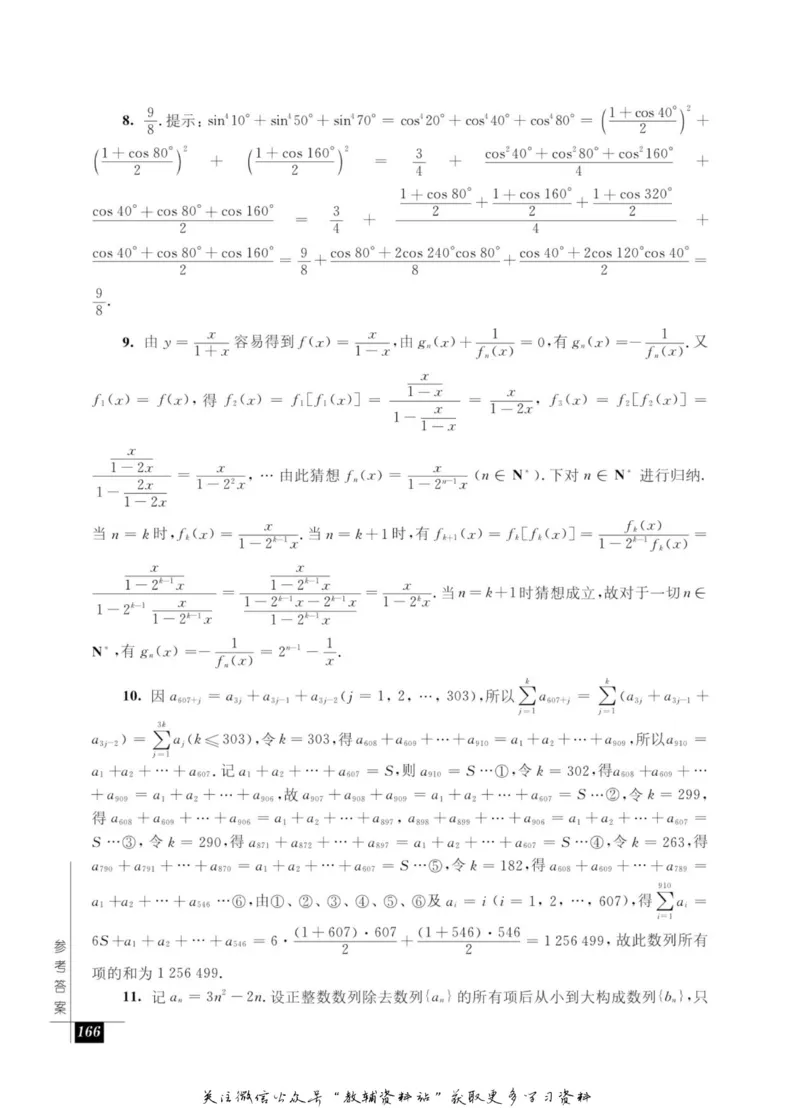 8. 9/8.提示：sin⁴10°＋sin⁴50°＋sin⁴70°＝cos⁴20°＋cos⁴40°＋cos⁴80°＝((1＋cos 40°)/2)²＋
((1＋cos 80°)/2)²＋((1＋cos 160°)/2)²＝3/4＋(cos²40°＋cos²80°＋cos²160°)/4＋
(cos 40°＋cos 80°＋cos 160°)/2＝3/4＋((1＋cos 80°)/2＋(1＋cos 160°)/2＋(1＋cos 320°)/2)/4＋
(cos 40°＋cos 80°＋cos 160°)/2＝9/8＋(cos 80°＋2cos 240°cos 80°)/8＋(cos 40°＋2cos 120°cos 40°)/2＝
9/8.
9. 由 y＝x/(1＋x) 容易得到 f(x)＝x/(1－x),由 gₙ(x)＋1/fₙ(x)＝0,有 gₙ(x)＝－1/fₙ(x).又
f₁(x)＝f(x),得 f₂(x)＝f₁[f₁(x)]＝(x/(1－x))/(1－x/(1－x))＝x/(1－2x), f₃(x)＝f₂[f₂(x)]＝
(x/(1－2x))/(1－2x/(1－2x))＝x/(1－2²x),… 由此猜想 fₙ(x)＝x/(1－2ⁿ⁻¹x) (n∈N*).下对 n∈N* 进行归纳.
当 n＝k 时,fₖ(x)＝x/(1－2ᵏ⁻¹x).当 n＝k＋1时,有 fₖ₊₁(x)＝fₖ[fₖ(x)]＝fₖ(x)/(1－2ᵏ⁻¹fₖ(x))＝
(x/(1－2ᵏ⁻¹x))/(1－2ᵏ⁻¹ x/(1－2ᵏ⁻¹x))＝(x/(1－2ᵏ⁻¹x))/((1－2ᵏ⁻¹x－2ᵏ⁻¹x)/(1－2ᵏ⁻¹x))＝x/(1－2ᵏx).当n＝k＋1时猜想成立,故对于一切n∈
N*,有 gₙ(x)＝－1/fₙ(x)＝2ⁿ⁻¹－1/x.
10. 因 a₆₀₇₊ⱼ＝a₃ⱼ＋a₃ⱼ₋₁＋a₃ⱼ₋₂(j＝1, 2, …, 303),所以 ∑(j=1→k) a₆₀₇₊ⱼ＝∑(j=1→k) (a₃ⱼ＋a₃ⱼ₋₁＋
a₃ⱼ₋₂)＝∑(j=1→3k) aⱼ(k≤303),令k＝303,得a₆₀₈＋a₆₀₉＋…＋a₉₁₀＝a₁＋a₂＋…＋a₉₀₉,所以a₉₁₀＝
a₁＋a₂＋…＋a₆₀₇.记a₁＋a₂＋…＋a₆₀₇＝S,则a₉₁₀＝S…①,令k＝302,得a₆₀₈＋a₆₀₉＋…
＋a₉₀₉＝a₁＋a₂＋…＋a₉₀₆,故a₉₀₇＋a₉₀₈＋a₉₀₉＝a₁＋a₂＋…＋a₆₀₇＝S…②,令k＝299,
得a₆₀₈＋a₆₀₉＋…＋a₉₀₆＝a₁＋a₂＋…＋a₈₉₇, a₈₉₈＋a₈₉₉＋…＋a₉₀₆＝a₁＋a₂＋…＋a₆₀₇＝
S…③,令k＝290,得a₈₇₁＋a₈₇₂＋…＋a₈₉₇＝a₁＋a₂＋…＋a₆₀₇＝S…④,令k＝263,得
a₇₉₀＋a₇₉₁＋…＋a₈₇₀＝a₁＋a₂＋…＋a₆₀₇＝S…⑤,令k＝182,得a₆₀₈＋a₆₀₉＋…＋a₇₈₉＝
a₁＋a₂＋…＋a₅₄₆…⑥,由①、②、③、④、⑤、⑥及aᵢ＝i (i＝1, 2, …, 607),得∑(i=1→910) aᵢ＝
6S＋a₁＋a₂＋…＋a₅₄₆＝6·((1＋607)·607)/2＋((1＋546)·546)/2＝1 256 499,故此数列所有
项的和为1 256 499.
11. 记aₙ＝3n²－2n.设正整数数列除去数列{aₙ}的所有项后从小到大构成数列{bₙ},只
参考答案
166
关注微信公众号“教辅资料站”获取更多学习资料